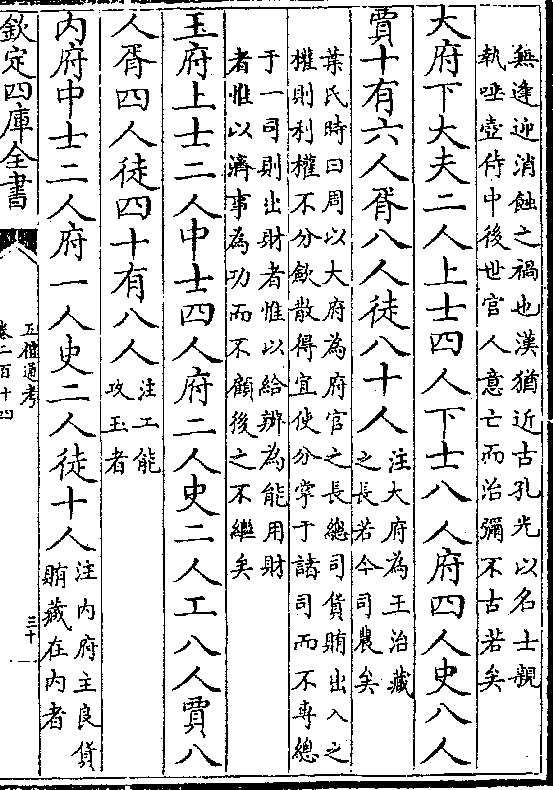 無逢迎消蝕之禍也漢猶近古孔光以名士親
執唾壺侍中後世官人意亡而治彌不古若矣
大府下大夫二人上士四人下士八人府四人史八人
賈十有六人胥八人徒八十人注大府為王治藏
之長若今司農矣
葉氏時曰周以大府為府官之長總司貨賄出入之
權則利權不分斂散得宜使分掌于諸司而不專總
于一司則出財者惟以給辦為能用財
者惟以濟事為功而不顧後之不繼矣
玉府上士二人中士四人府二人史二人工八人賈八
人胥四人徒四十有八人注工能
攻玉者
內府中士二人府一人史二人徒十人注內府主良貨
賄藏在內者
欽定四庫全書
五禮通考
卷二百十四
三十